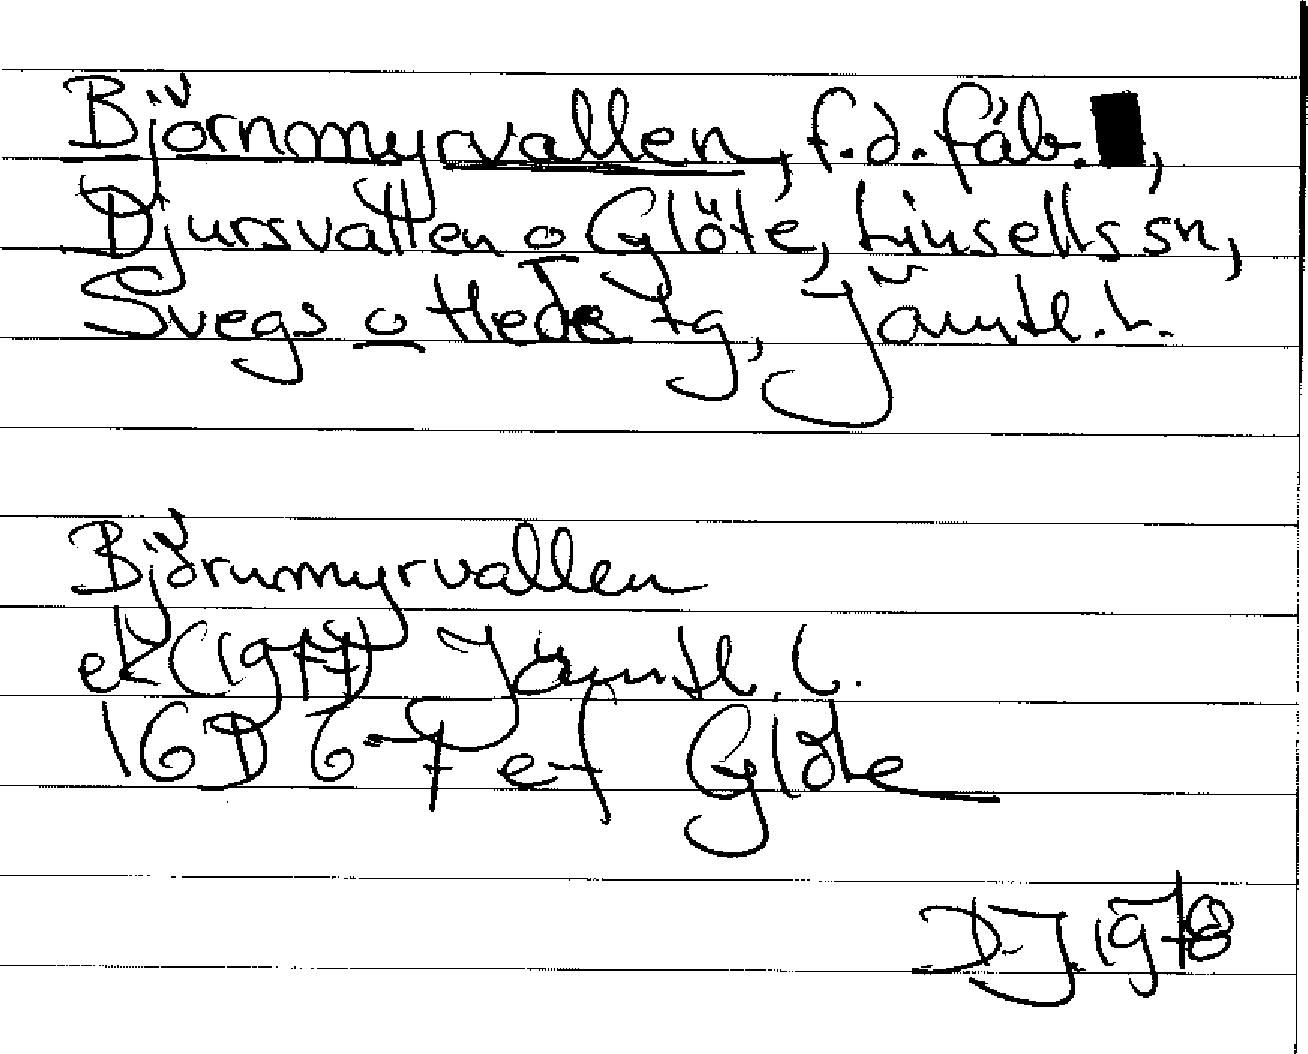 Björnmyrvallen, f.d. fäb.,
Djursvallen o Glöte, Linsells sn,
Svegs o Hede tg, Jämtl. L.
Björnmyrvallen
ek (1977) Jämtl. L.
16D 6-7 e-f Glöte
D.J. 1978